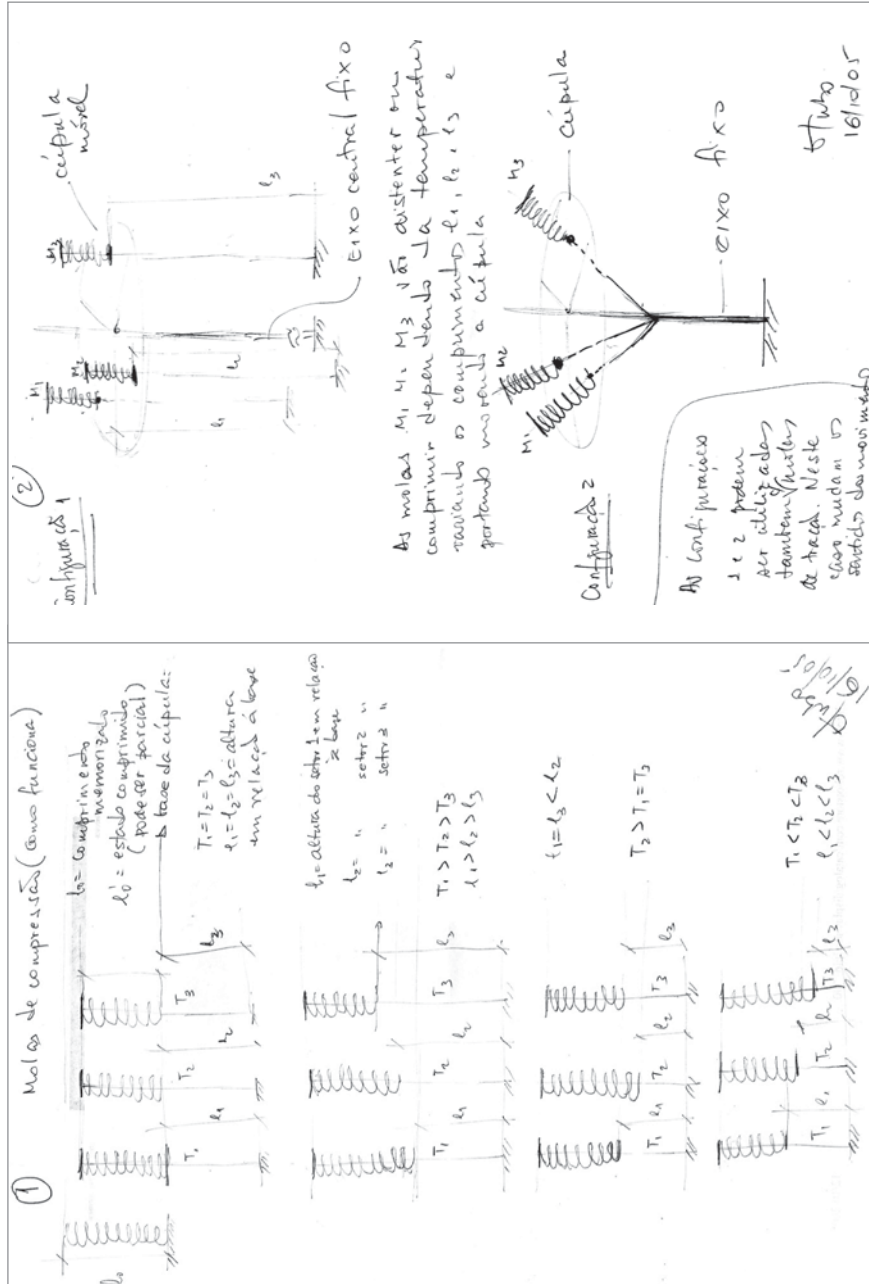 1
Molas de compressão (como funciona)
l0 = comprimento
memorizado
l0' = estado comprimido
(pode ser parcial)
base da cúpula
T1 T2 T3
l1 l2 l3
T1 = T2 = T3
l1 = l2 = l3 = altura
em relação à base
l1 = altura do setor 1 em relação
à base
l2 = " setor 2 "
l2 = " setor 3 "
T1 l1 T2 l2 T3 l3
T1 > T2 > T3
l1 > l2 > l3
T1 l1 T2 l2 T3 l3
l1 = l3 < l2
T2 > T1 = T3
T1 l1 T2 l2 T3 l3
T1 < T2 < T3
l1 < l2 < l3
16/10/05
2
configuração 1
M1
M2
M3
cúpula
móvel
l1
l3
Eixo central fixo
As molas M1 M2 M3 vão distenter ou
comprimir dependendo da temperatur
variando os comprimentos l1, l2, l3 e
portando movendo a cúpula
Configuração 2
M1
M2
M3
cúpula
eixo fixo
As configurações
1 e 2 podem
ser utilizadas
tambem molas
de tração. Neste
caso mudam os
sentidos dos movimentos
16/10/05